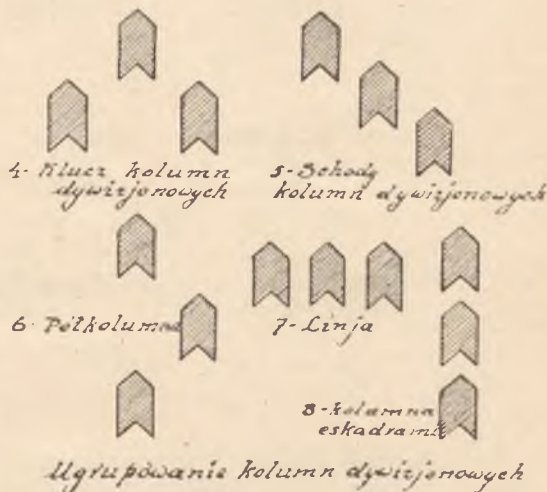 4- Klucz kolumn
dywizjonowych
5- Schody
kolumn dywizjonowych
6 Półkolumna
7- Linja
8-kolumna
eskadrami
Ugrupowanie kolumn dywizjonowych